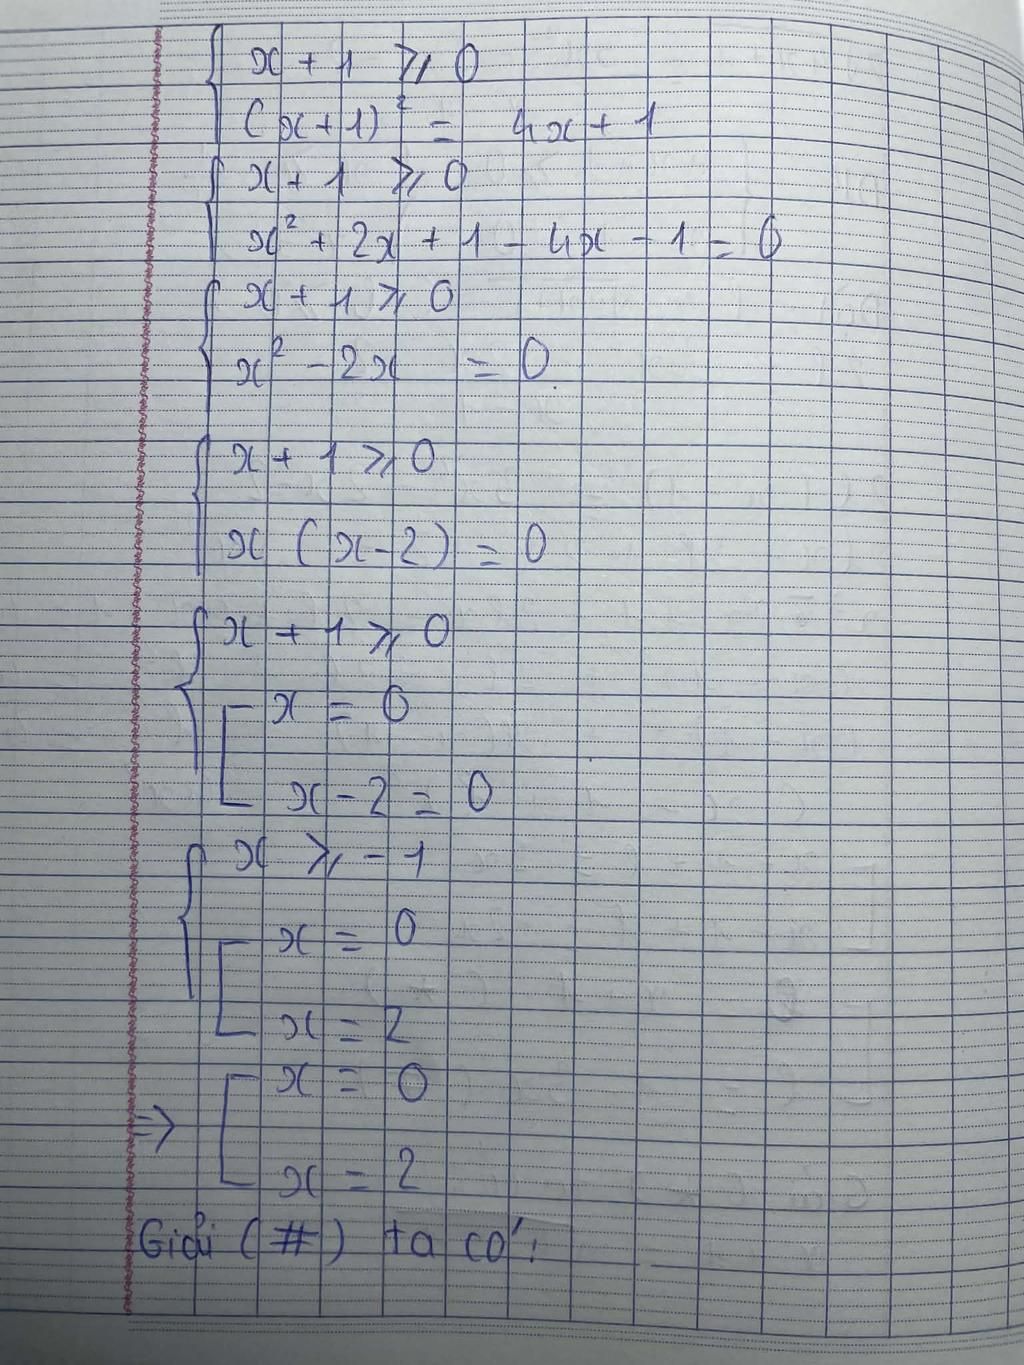 x + 1 ⩾ 0
(x + 1)² = 4x + 1
x + 1 ⩾ 0
x² + 2x + 1 - 4x - 1 = 0
x + 1 ⩾ 0
x² - 2x = 0
x + 1 ⩾ 0
x (x - 2) = 0
x + 1 ⩾ 0
x = 0
x - 2 = 0
x ⩾ -1
x = 0
x = 2
x = 0
=>
x = 2
Giải (#) ta có: